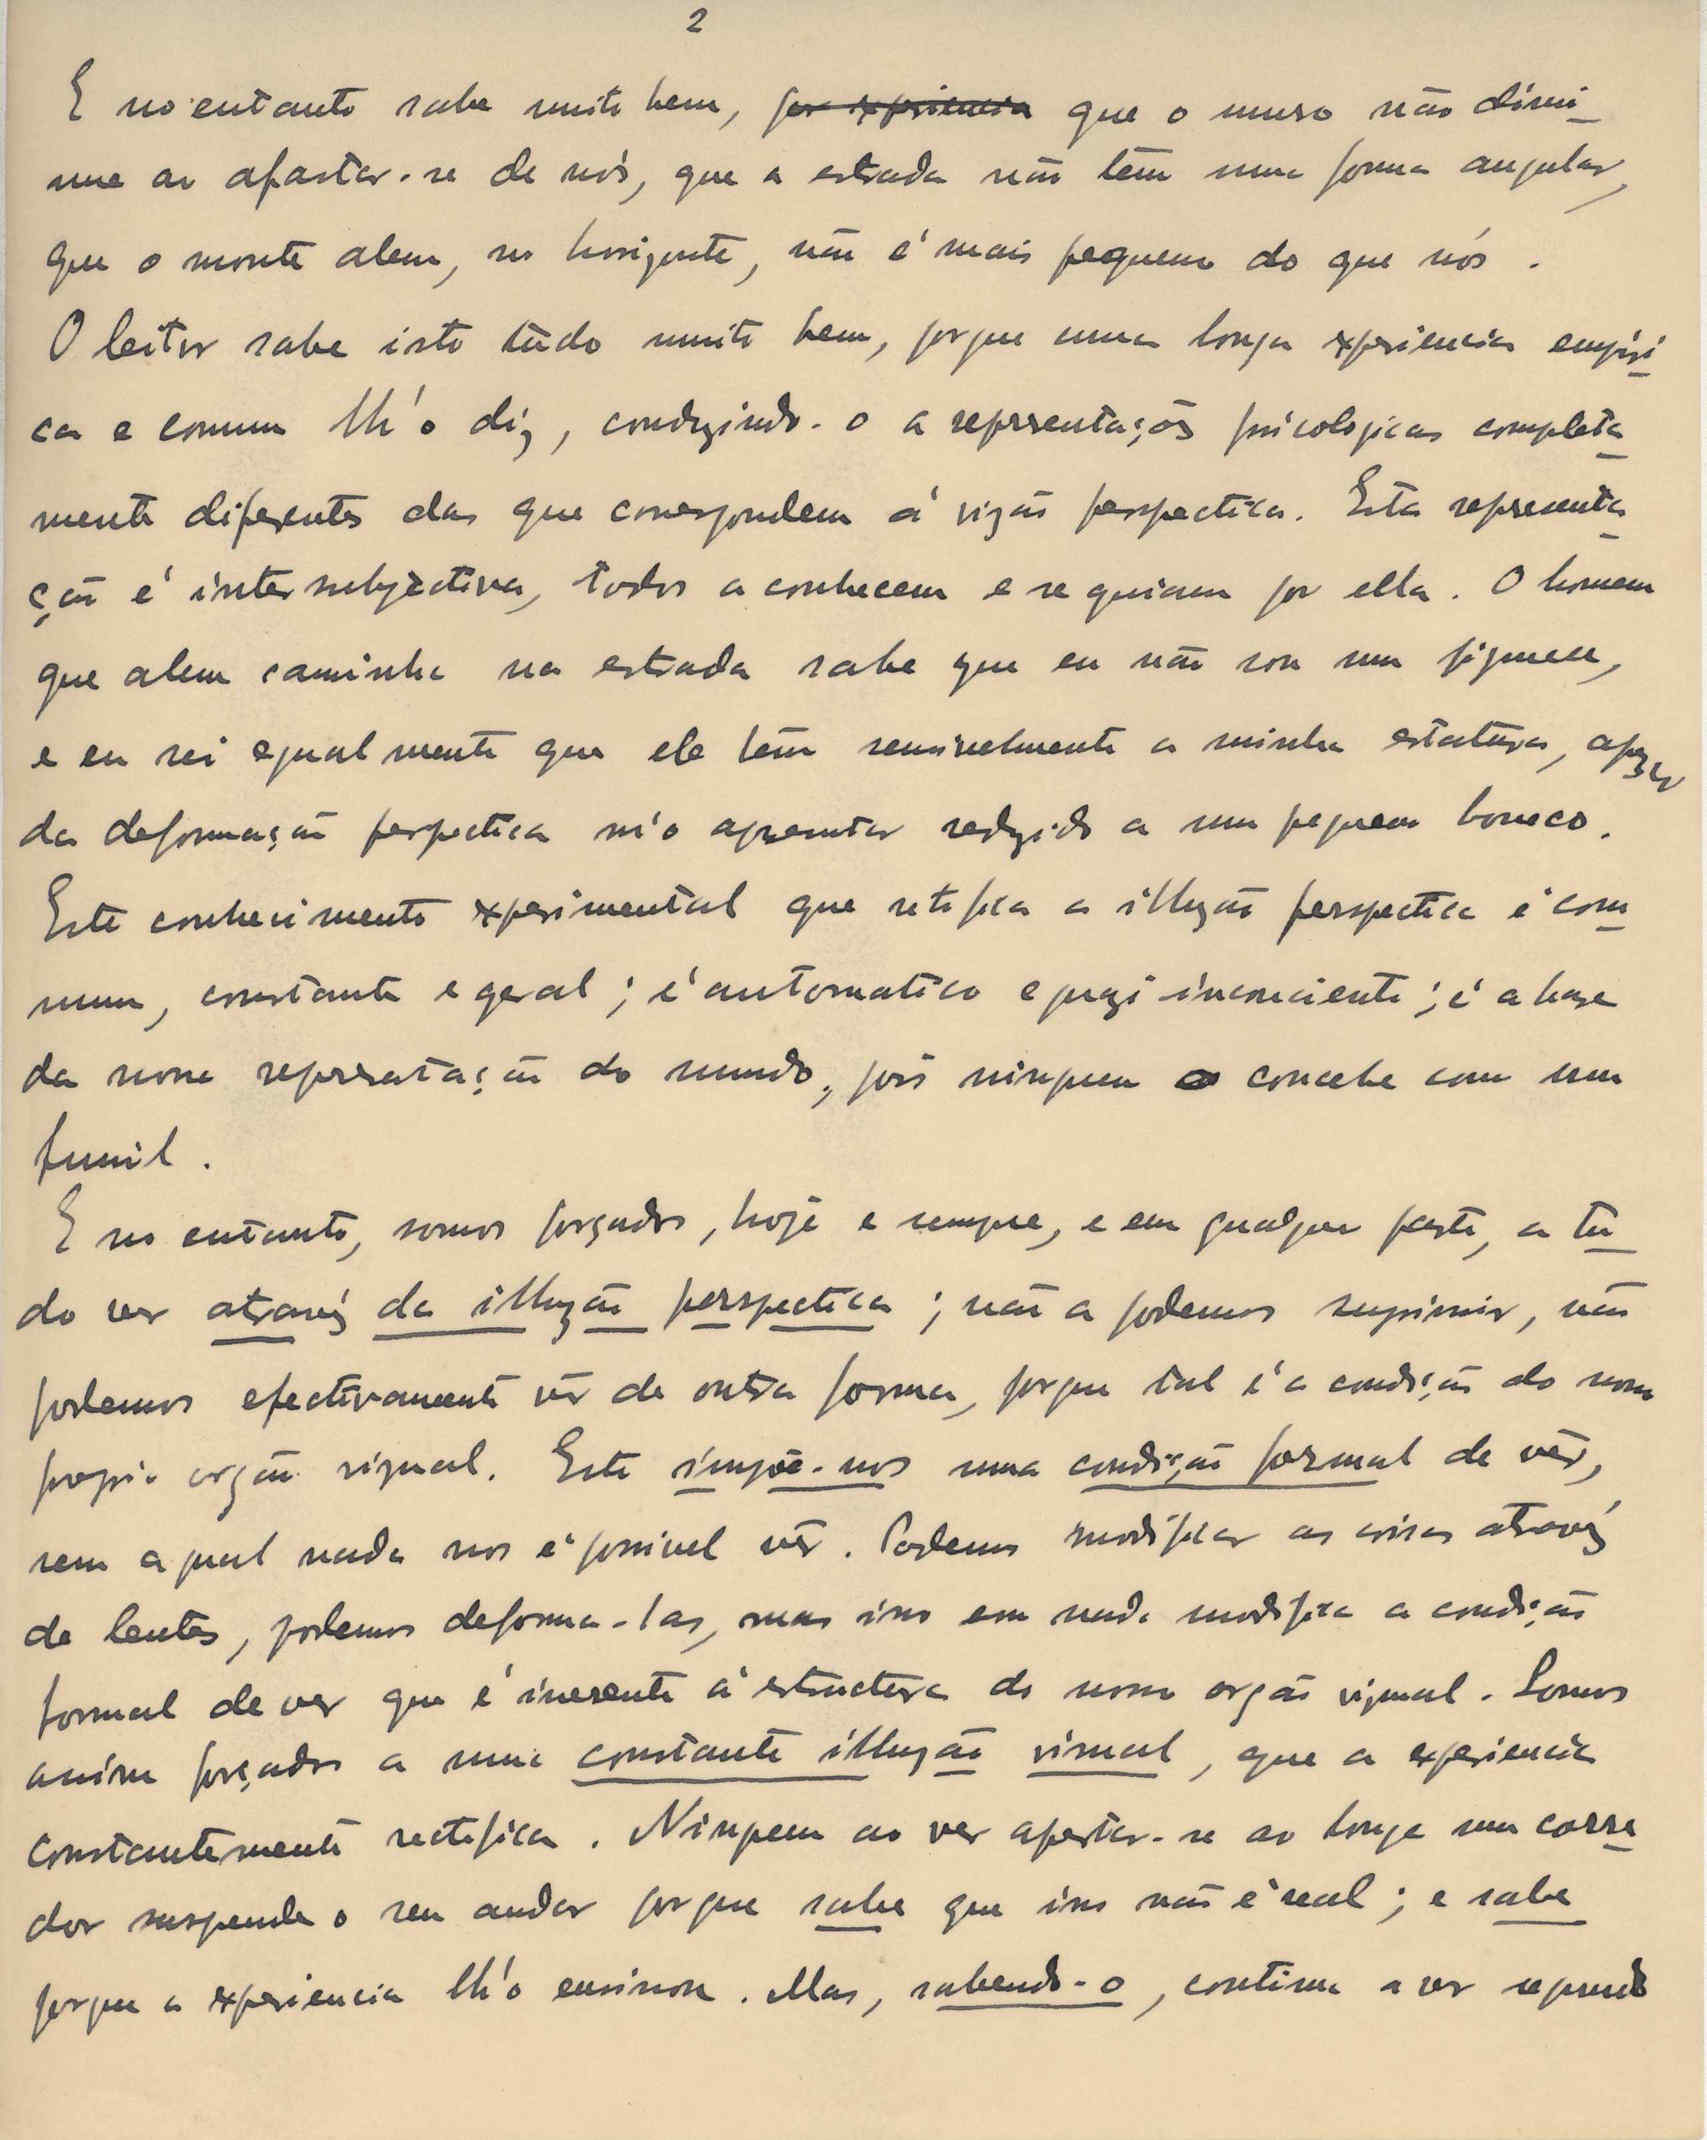 2
E no entanto sabe muito bem, por experiencia que o muro não dimi-
nue ao afastar-se de nós, que a estrada não têm uma forma angular,
que o monte alem, no horizonte, não é mais pequeno do que nós.
O leitor sabe isto tùdo muito bem, porque uma longa experiencia empiri-
ca e comum lh'o diz, conduzindo-o a representações psicologicas completa-
mente diferentes das que correspondem á vizão perspectica. Esta representa-
ção é intersubjectiva, todos a conhecem e se guiam por ella. O homem
que alem caminha na estrada sabe que eu não sou um pigmeu,
e eu sei egualmente que ele têm sensivelmente a minha estatura, apezar
da deformação perspectica m'o apresentar reduzido a um pequeno boneco.
Este conhecimento experimental que retifica a illuzão perspectica é com-
mum, constante e geral; é automatico e quazi inconsciente; é a baze
da nossa representação do mundo, pois ninguem o concebe com um
funil.
E no entanto, somos forçados, hoje e sempre, e em qualquer parte, a tu-
do ver atravéz da illuzão perspectica; não a podemos suprimir, não
podemos efectivamente vêr de outra forma, porque tal é a condição do nosso
proprio orgão vizual. Este impõe-nos uma condição formal de vêr,
sem a qual nada nos é possivel vêr. Podemos modificar as coisas atravéz
de lentes, podemos deforma-las, mas isso em nada modifica a condição
formal de ver que é inerente á estructura do nosso orgão vizual. Somos
assim forçados a uma constante illuzão visual, que a experiencia
constantemente rectifica. Ninguem ao ver apertar-se ao longe um corre-
dor suspende o seu andar porque sabe que isso não é real; e sabe
porque a experiencia lh'o ensinou. Mas, sabendo-o, continua a ver segundo